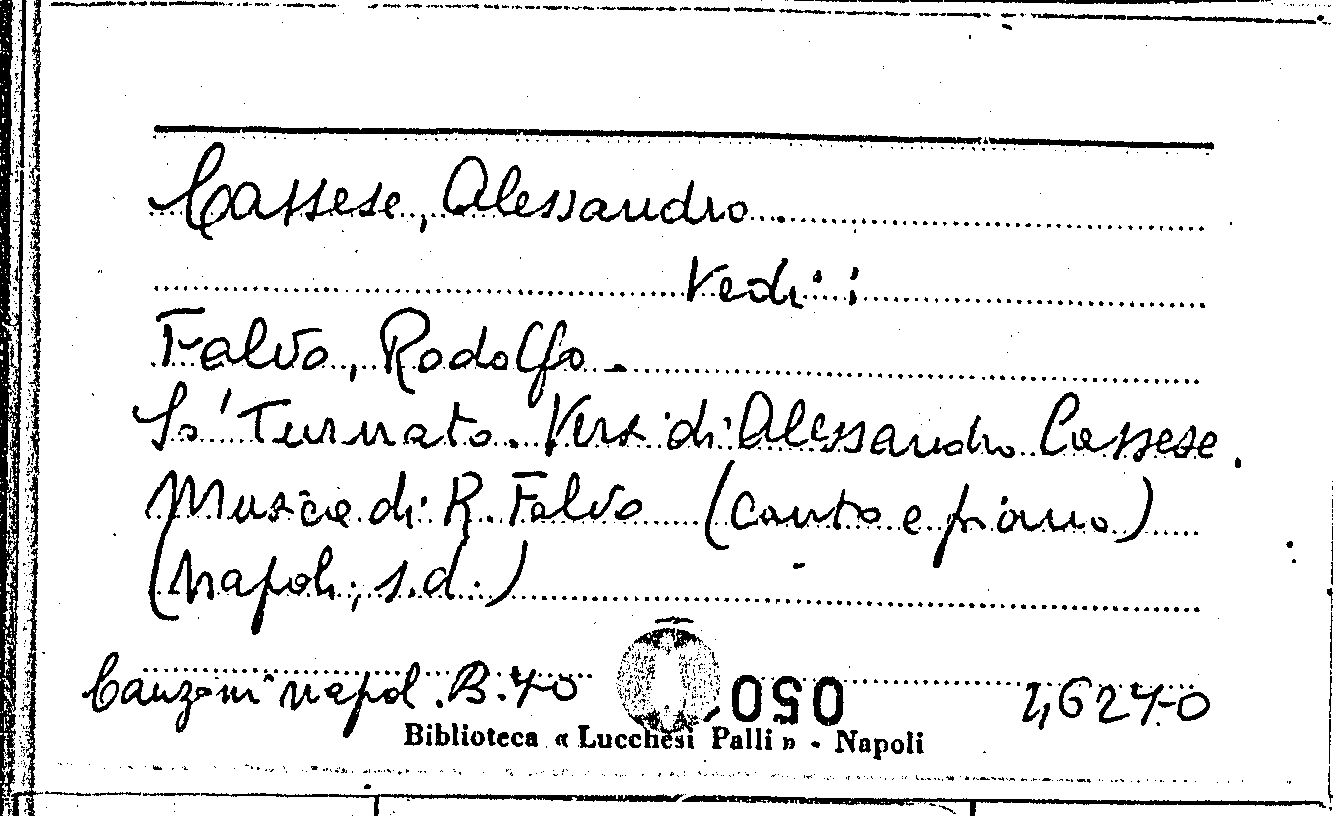 Cassese, Alessandro.
Vedi:
Falvo, Rodolfo.
So' Turnato. Versi di Alessandro Cassese.
Musica di R. Falvo (canto e piano)
(Napoli, s.d.)
Canzoni napol. B. 70 050
Biblioteca « Lucchesi Palli » - Napoli